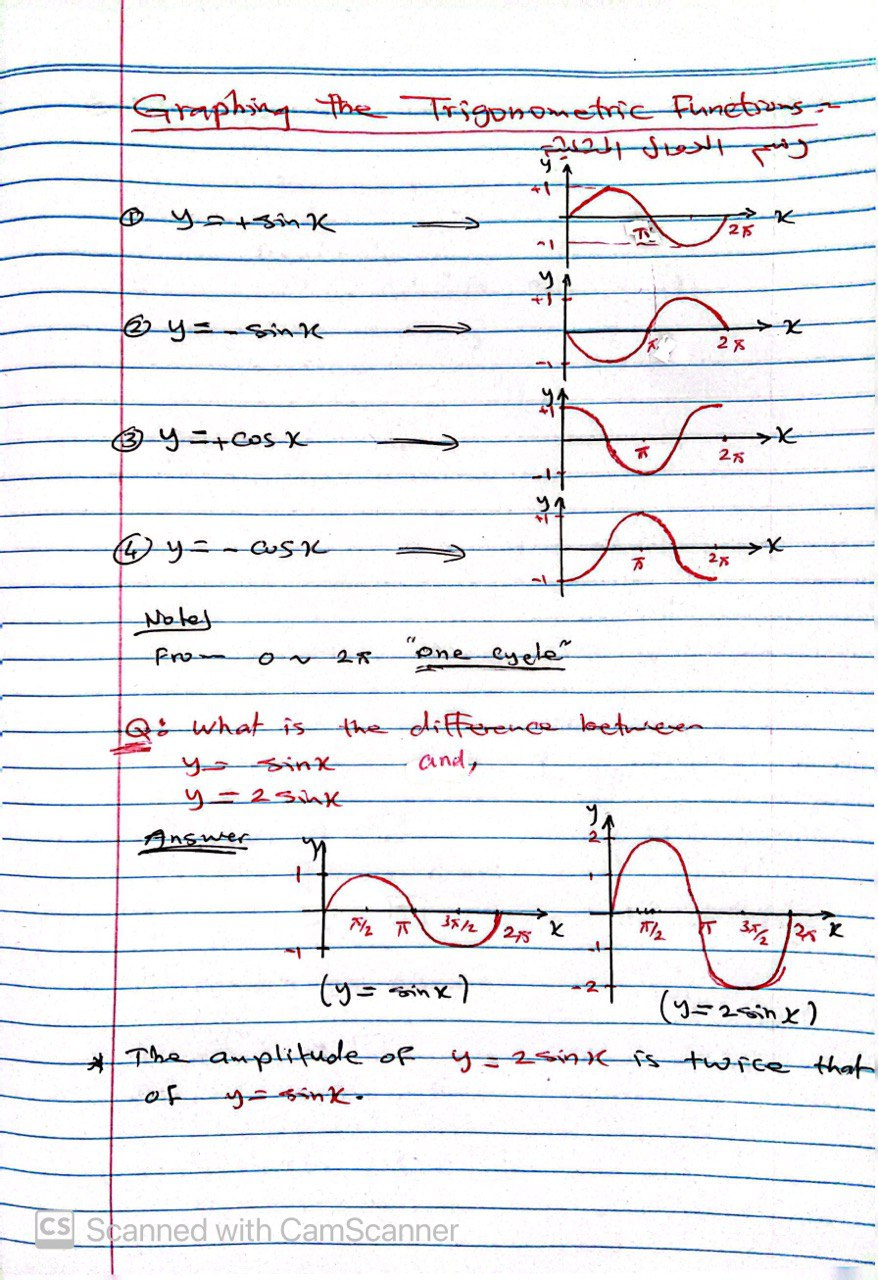 Graphing the Trigonometric Functions :-
رسم الدوال المثلثية
① y = + sin x ⟹
y
+1
-1
π
2π
x
② y = - sin x ⟹
y
+1
-1
π
2π
x
③ y = + cos x ⟹
y
+1
-1
π
2π
x
④ y = - cos x ⟹
y
+1
-1
π
2π
x
Notes
From 0 ~ 2π "one cycle"
Q: What is the difference between
y = sin x and,
y = 2 sin x
Answer
y
1
-1
π/2 π 3π/2 2π x
(y = sin x)
y
2
1
-1
-2
π/2 π 3π/2 2π x
(y = 2 sin x)
* The amplitude of y = 2 sin x is twice that
of y = sin x.
CS Scanned with CamScanner